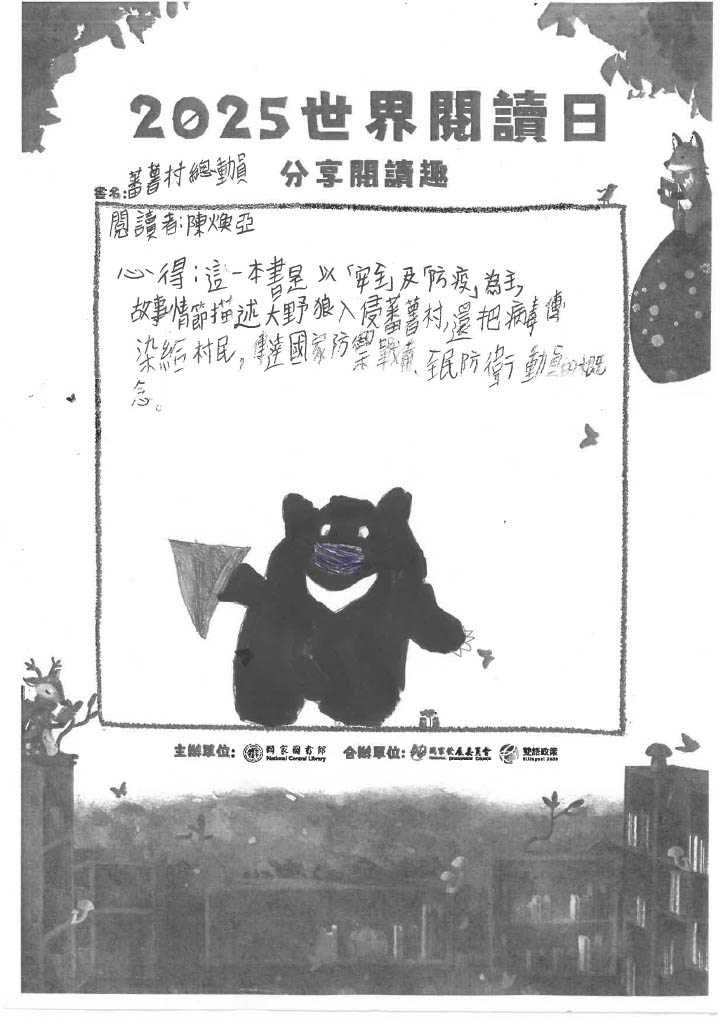 2025世界閱讀日
分享閱讀趣
書名:蕃薯村總動員
閱讀者:陳煥亞
心得:這一本書是以「安全」及「防疫」為主,
故事情節描述大野狼入侵蕃薯村,還把病毒傳
染給村民,傳達國家防禦戰備、全民防衛動員的概
念。
主辦單位: 國家圖書館 合辦單位: 國家發展委員會 雙語政策
National Central Library NATIONAL DEVELOPMENT COUNCIL Bilingual 2030